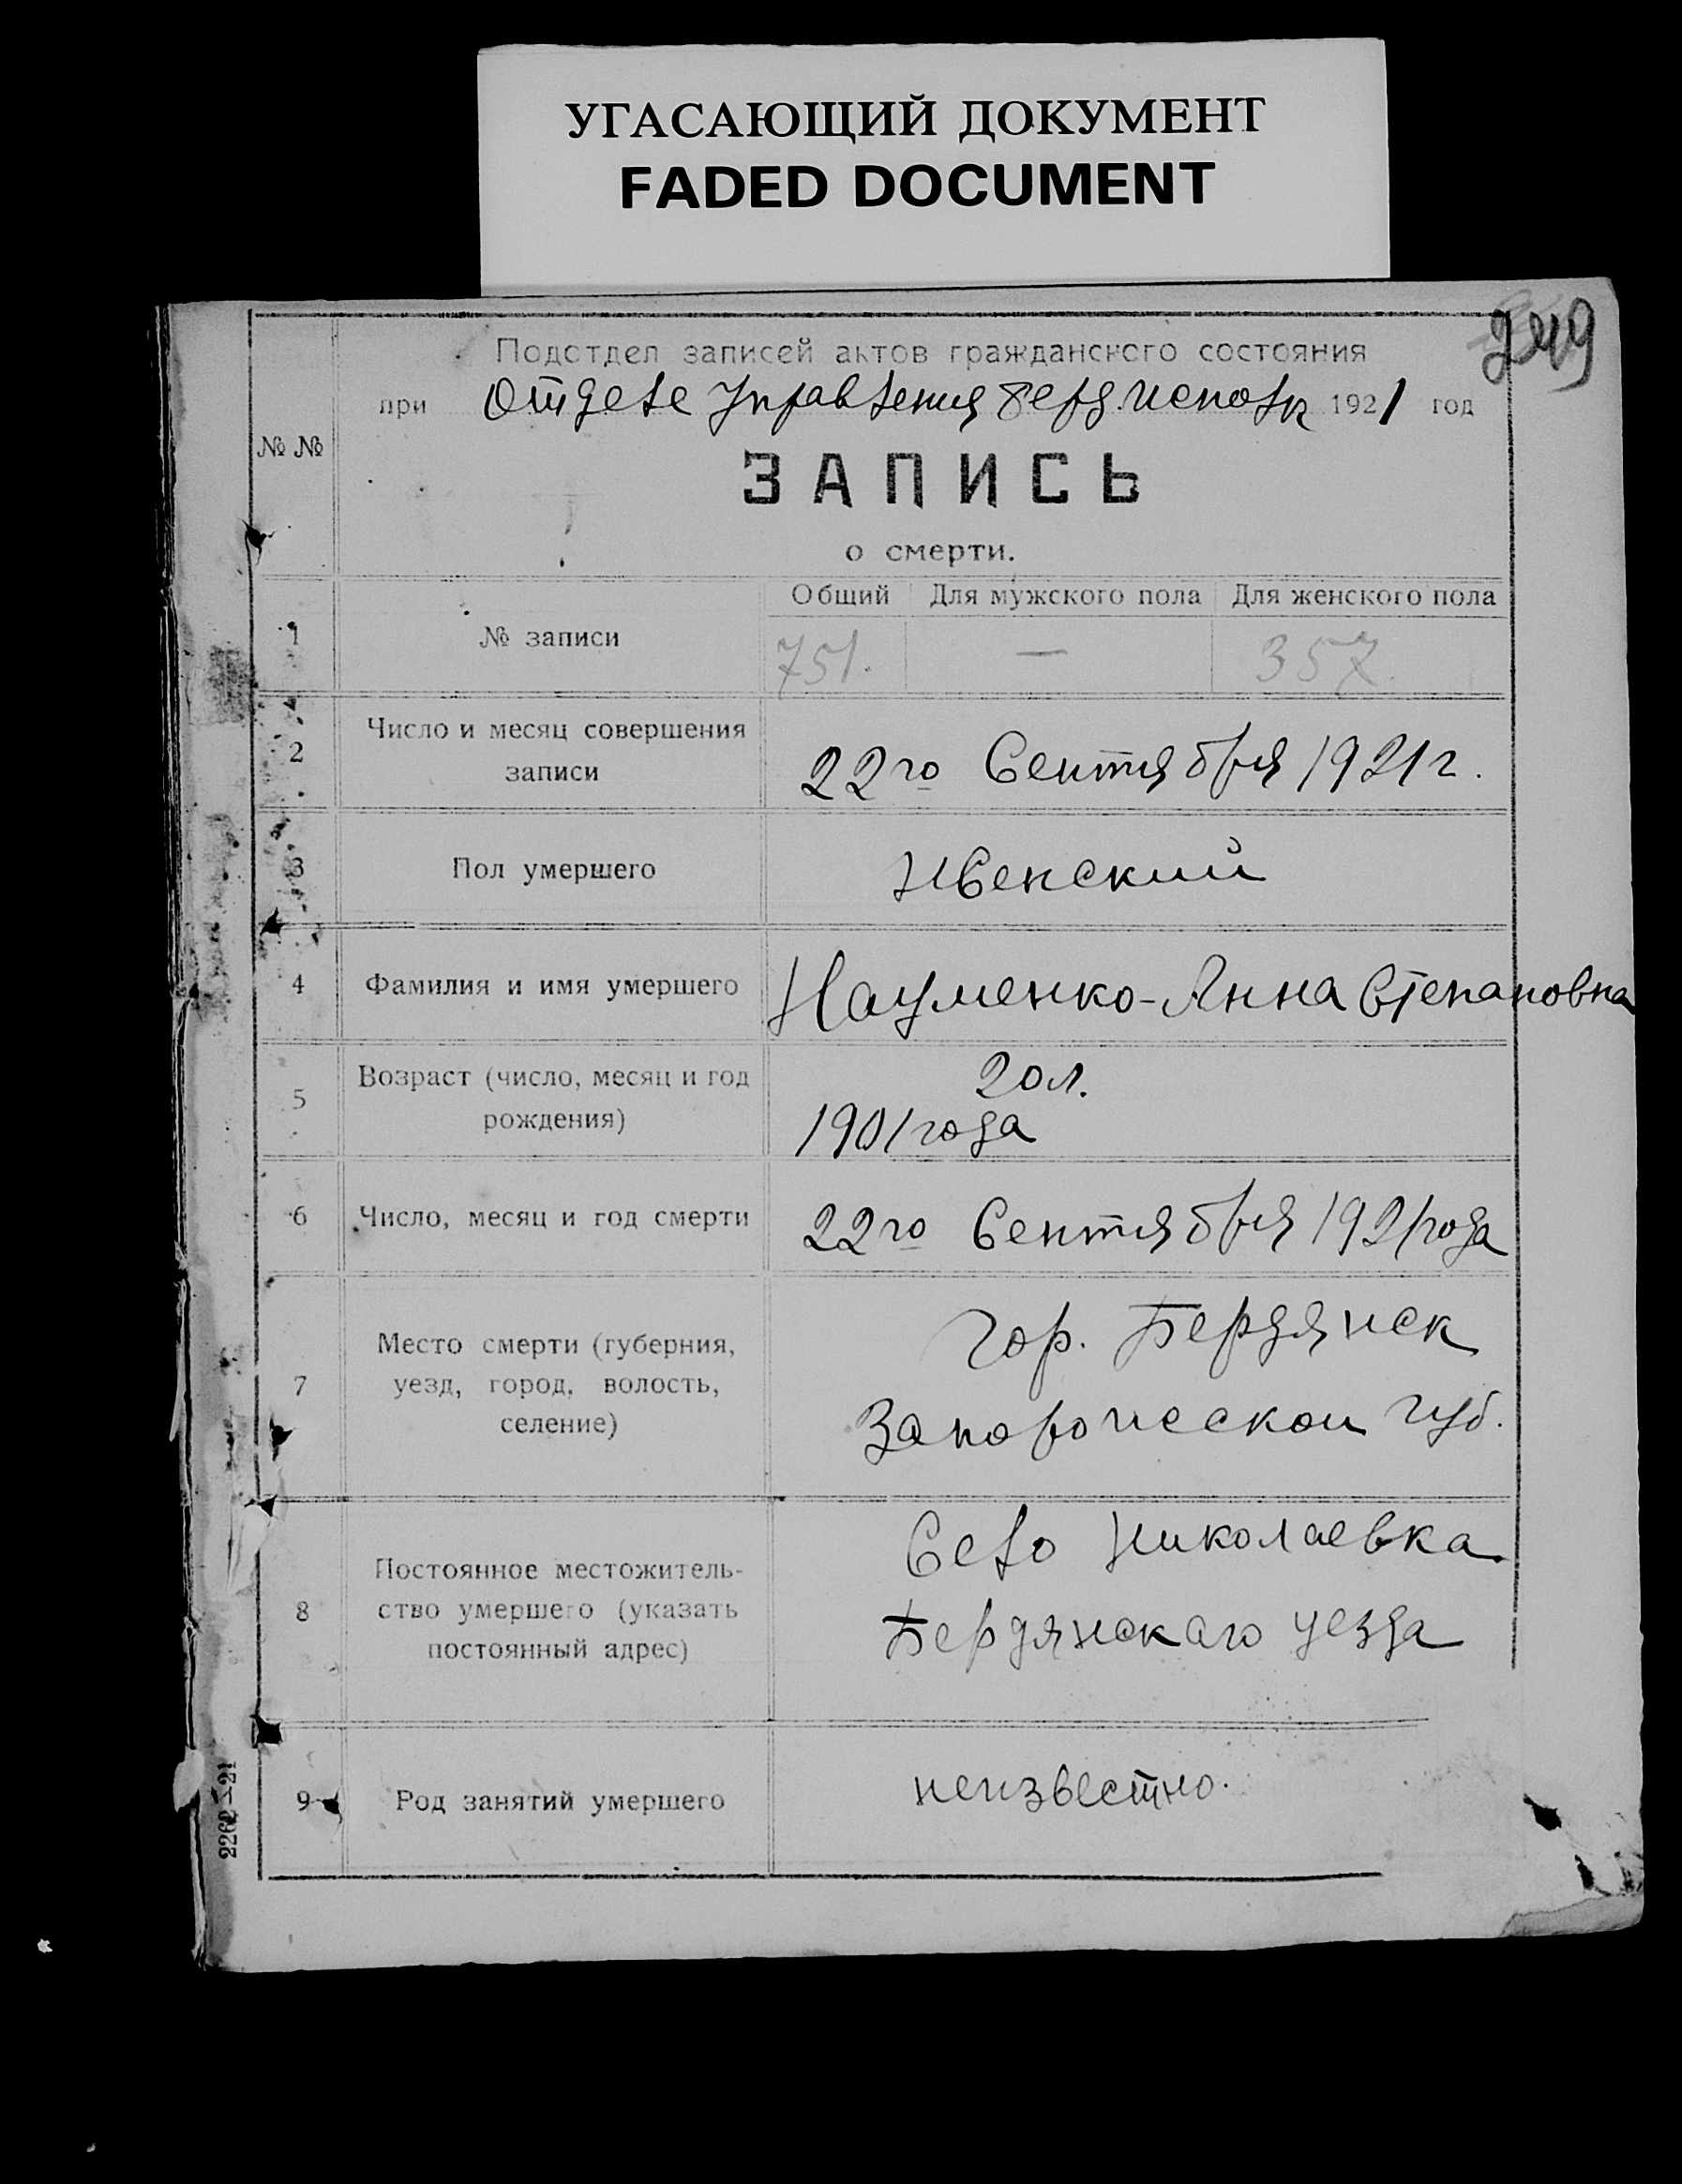 УГАСАЮЩИЙ ДОКУМЕНТ
FADED DOCUMENT
Подотдел записей актов гражданского состояния
при Отделе Управления Берд. Исполк 1921 год
№ №
ЗАПИСЬ
о смерти.
Общий Для мужского пола Для женского пола
1 № записи 751. — 357
2 Число и месяц совершения
записи
22го Сентября 1921 г.
3 Пол умершего Женский
4 Фамилия и имя умершего Науменко-Анна Степановна
5 Возраст (число, месяц и год
рождения)
20 л.
1901 года
6 Число, месяц и год смерти 22го Сентября 1921 года
7 Место смерти (губерния,
уезд, город, волость,
селение)
Гор. Бердянск
Запорожской губ.
8 Постоянное местожитель-
ство умершего (указать
постоянный адрес)
Село Николаевка
Бердянскаго уезда
9 Род занятий умершего неизвестно.